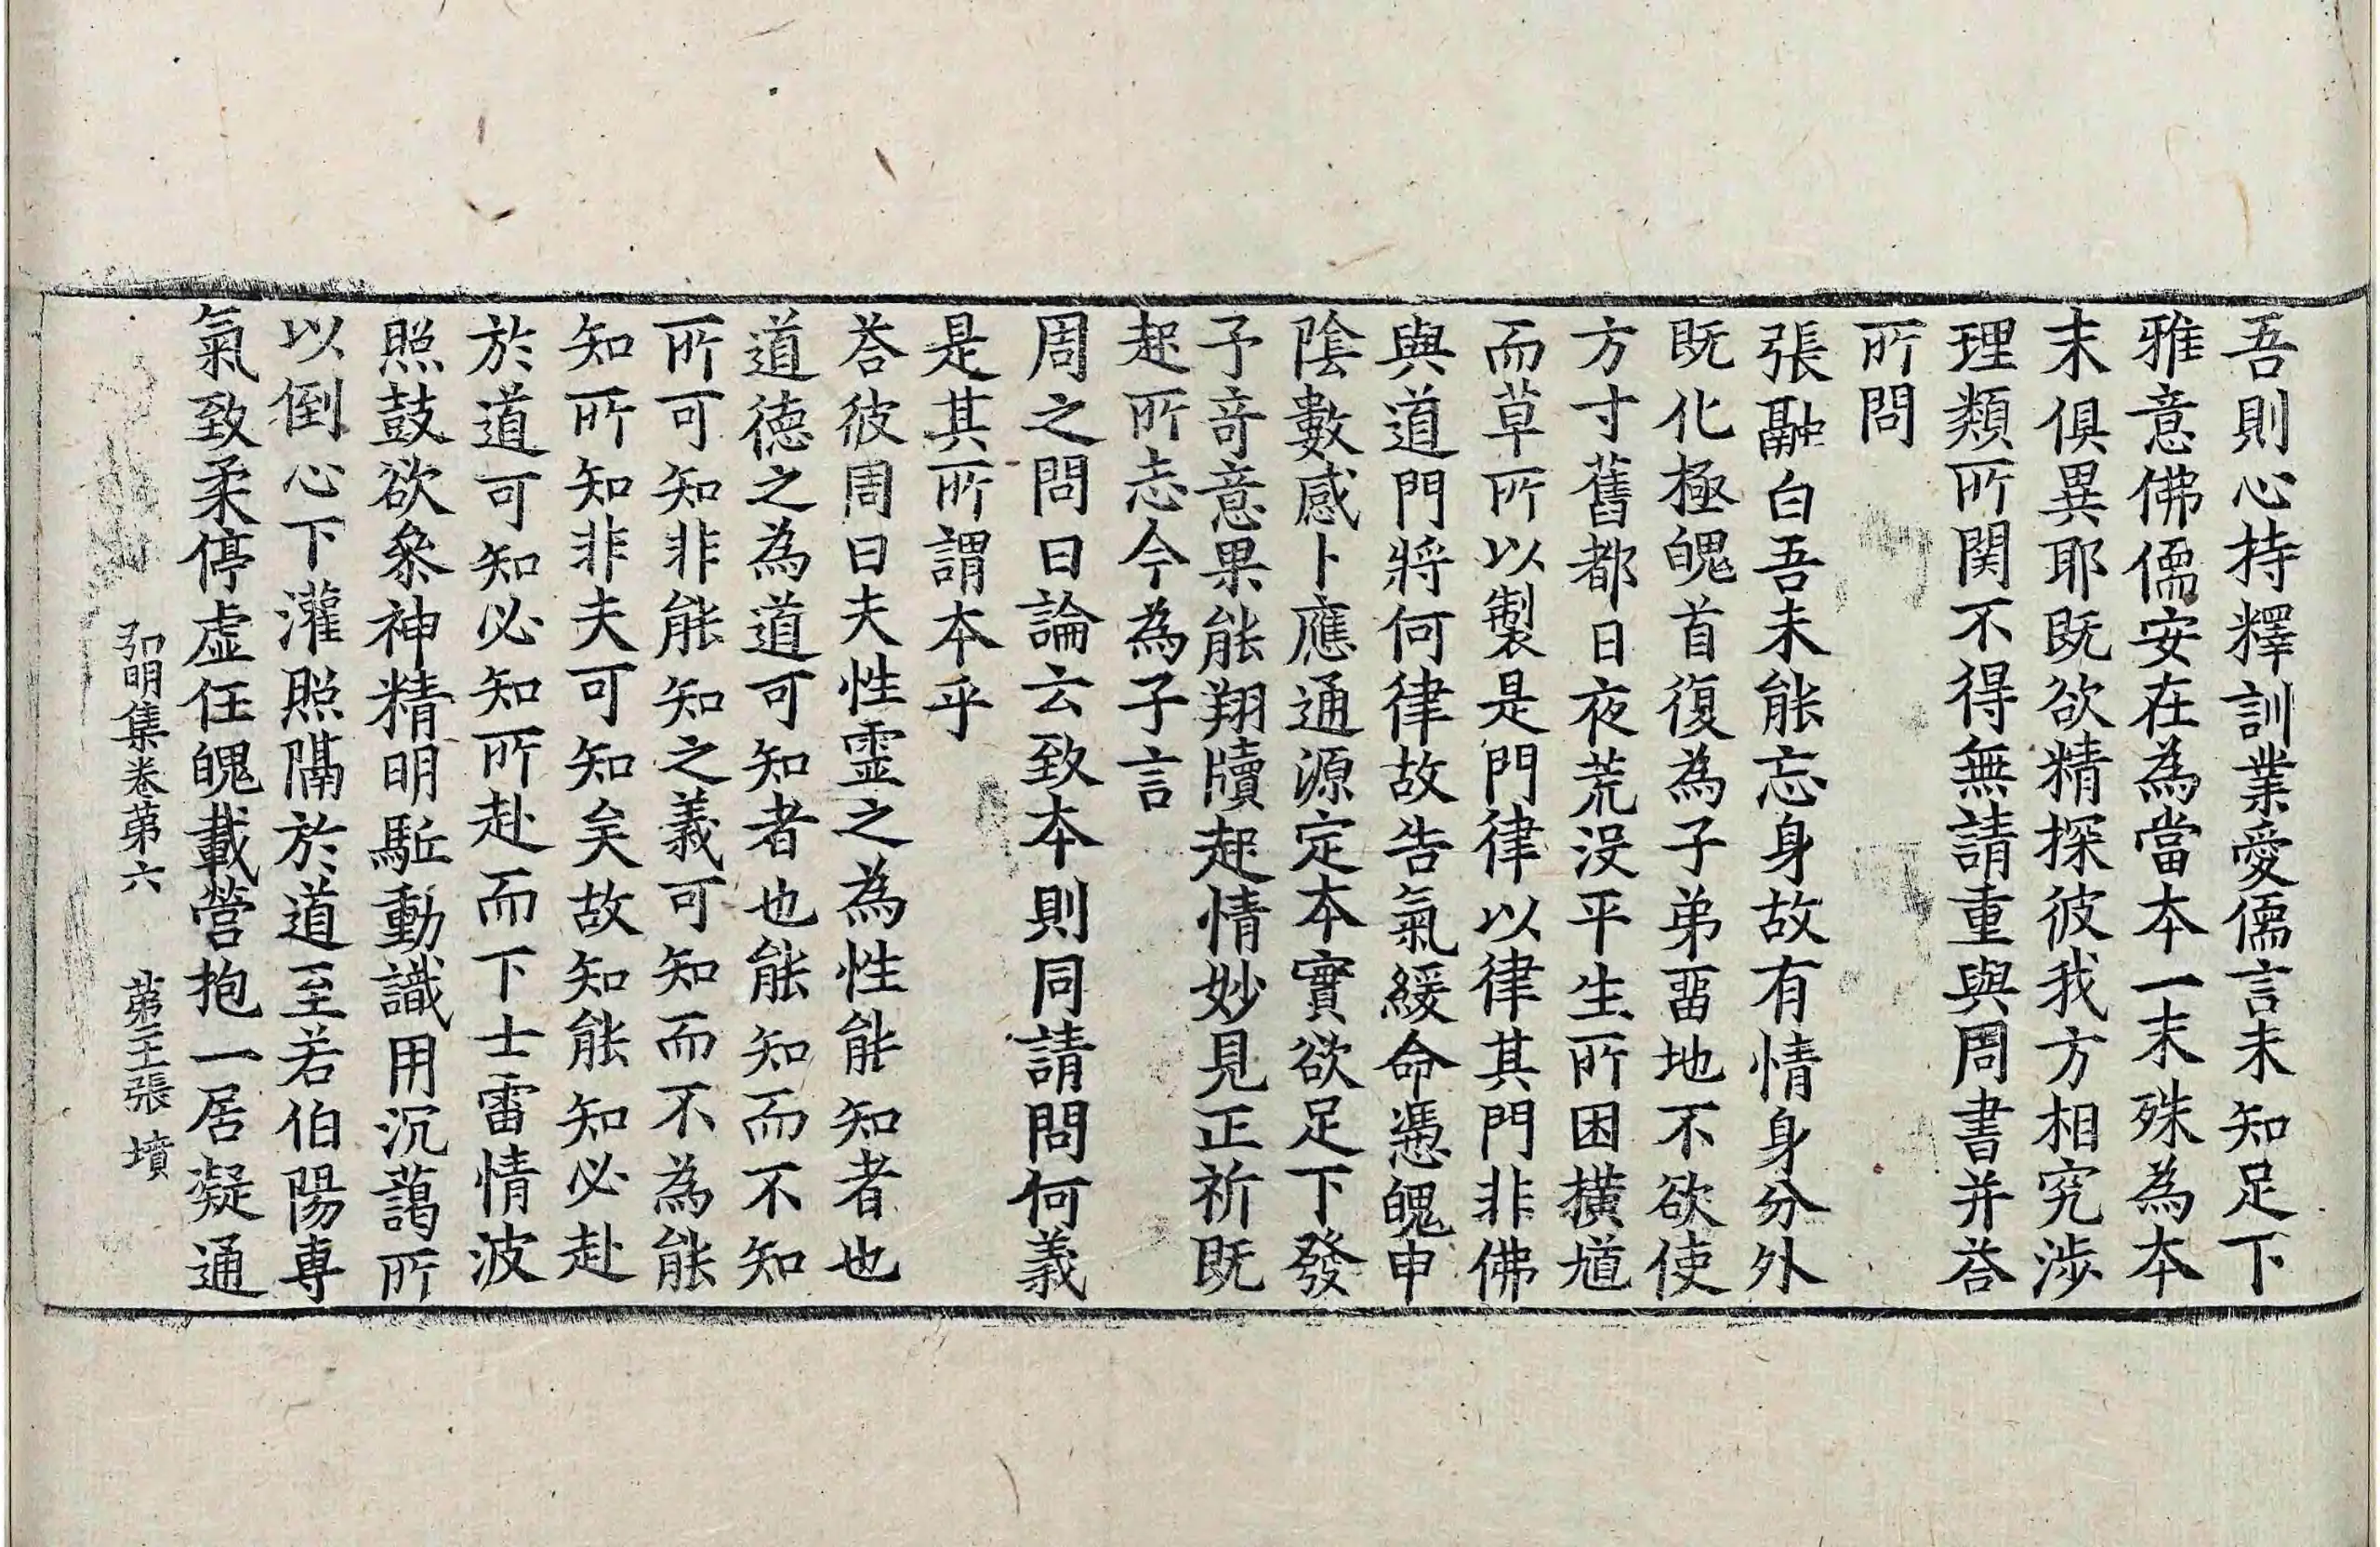 吾則心持釋訓業愛儒言未知足下
雅意佛儒安在為當本一末殊為本
末俱異耶既欲精探彼我方相究渉
理類所関不得無請重與周書并荅
所問
張融白吾未能忘身故有情身分外
既化極魄首復為子弟畱地不欲使
方寸舊都日夜荒没平生所困横馗
而草所以製是門律以律其門非佛
與道門將何律故告氣緩命憑魄申
陰數感卜應通源定本實欲足下發
予竒意果能翔牘起情妙見正祈既
起所志今為子言
周之問曰論云致本則同請問何義
是其所謂本乎
荅彼周曰夫性霊之為性能知者也
道德之為道可知者也能知而不知
所可知非能知之義可知而不為能
知所知非夫可知矣故知能知必赴
於道可知必知所赴而下士雷情波
照鼓欲叅神精明駈動識用沉藹所
以倒心下灌照隔於道至若伯陽専
氣致柔停虚任魄載營抱一居凝通
弘明集卷苐六 苐二王張 墳